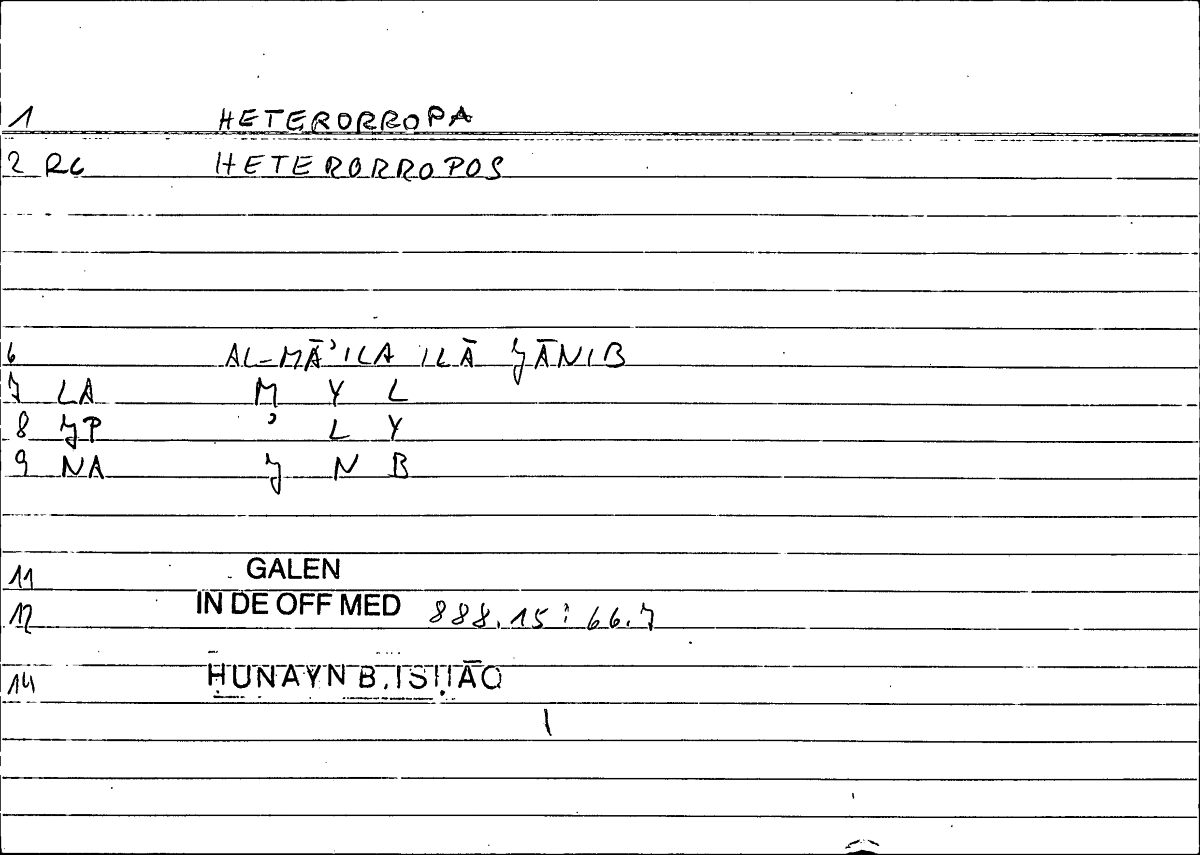 1 HETERORROPA
2 RC HETERORROPOS
6 AL-MĀʾILA ILĀ ǦĀNIB
7 LA M Y L
8 ǦP ʾ L Y
9 NA Ǧ N B
11 GALEN
12 IN DE OFF MED 888.15 : 66.7
14 ḤUNAYN B. ISḤĀQ